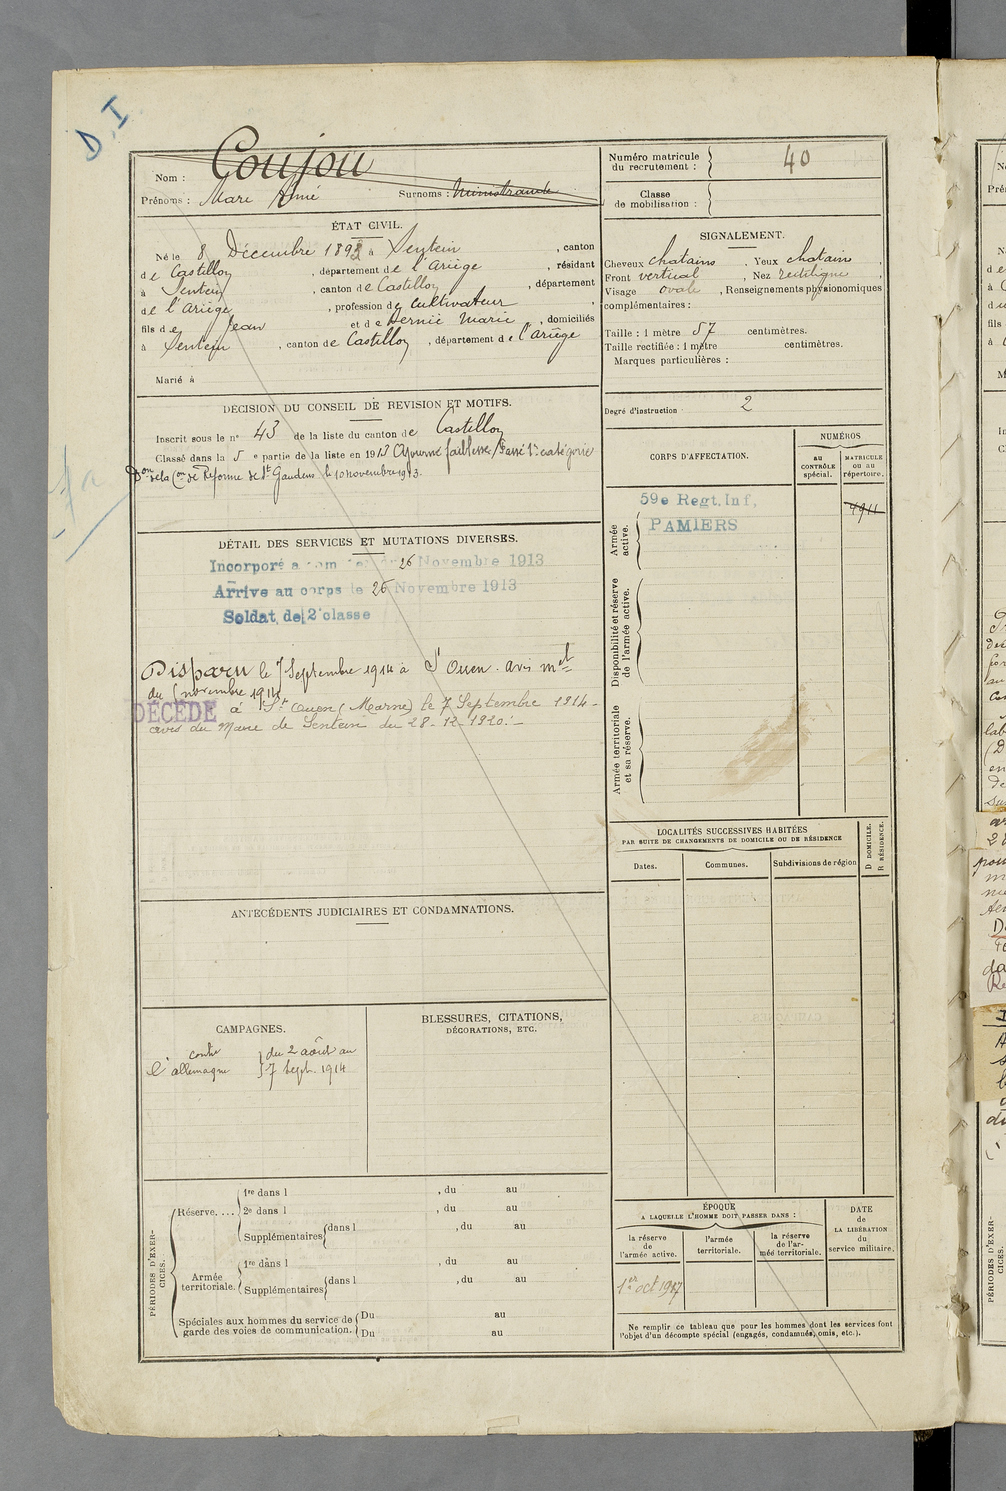 D.I
Nom : Coujou
Prénoms : Marc Aimé Surnoms :
Numéro matricule du recrutement : 40
Classe de mobilisation :
ÉTAT CIVIL.
Né le 8 Décembre 1893 à Sentein, canton
de Castillon, département de l'Ariège, résidant
à Sentein, canton de Castillon, département
de l'Ariège, profession de cultivateur,
fils de Jean et de Hernie Marie, domiciliés
à Sentein, canton de Castillon, département de l'Ariège
Marié à
SIGNALEMENT.
Cheveux chatains, Yeux chatains,
Front vertical, Nez rectiligne,
Visage ovale, Renseignements physionomiques
complémentaires :
Taille : 1 mètre 57 centimètres.
Taille rectifiée : 1 mètre centimètres.
Marques particulières :
Degré d'instruction 2
DÉCISION DU CONSEIL DE REVISION ET MOTIFS.
Inscrit sous le n° 43 de la liste du canton de Castillon
Classé dans la 5e partie de la liste en 1913 Ajourné faiblesse / Passé 1re catégorie
Don de la Con de Réforme de St Gaudens le 10 novembre 1913.
DÉTAIL DES SERVICES ET MUTATIONS DIVERSES.
Incorporé a 26 Novembre 1913
Arrive au corps le 26 Novembre 1913
Soldat de 2e classe
Disparu le 7 Septembre 1914 à St Ouen. avis mel
du novembre 1914
DÉCÉDÉ à St Ouen (Marne) le 7 Septembre 1914 -
avis du Maire de Sentein du 28-12-1920.
CORPS D'AFFECTATION.
NUMÉROS
AU CONTRÔLE spécial.
MATRICULE OU AU répertoire.
Armée active.
59e Regt. Inf,
PAMIERS
4911
Disponibilité et réserve de l'armée active.
Armée territoriale et sa réserve.
LOCALITÉS SUCCESSIVES HABITÉES
PAR SUITE DE CHANGEMENTS DE DOMICILE OU DE RÉSIDENCE
Dates. Communes. Subdivisions de région
D DOMICILE.
R RÉSIDENCE.
ANTÉCÉDENTS JUDICIAIRES ET CONDAMNATIONS.
CAMPAGNES.
contre l'allemagne du 2 août au
7 Sept. 1914
BLESSURES, CITATIONS,
DÉCORATIONS, ETC.
PÉRIODES D'EXERCICES.
Réserve....
1re dans l , du au
2e dans l , du au
Supplémentaires dans l , du au
Armée territoriale.
1re dans l , du au
Supplémentaires dans l , du au
Spéciales aux hommes du service de
garde des voies de communication.
Du au
Du au
ÉPOQUE
A LAQUELLE L'HOMME DOIT PASSER DANS :
la réserve de l'armée active.
l'armée territoriale.
la réserve de l'armée territoriale.
DATE de LA LIBÉRATION du service militaire.
1er oct 1917
Ne remplir ce tableau que pour les hommes dont les services font
l'objet d'un décompte spécial (engagés, condamnés, omis, etc.).